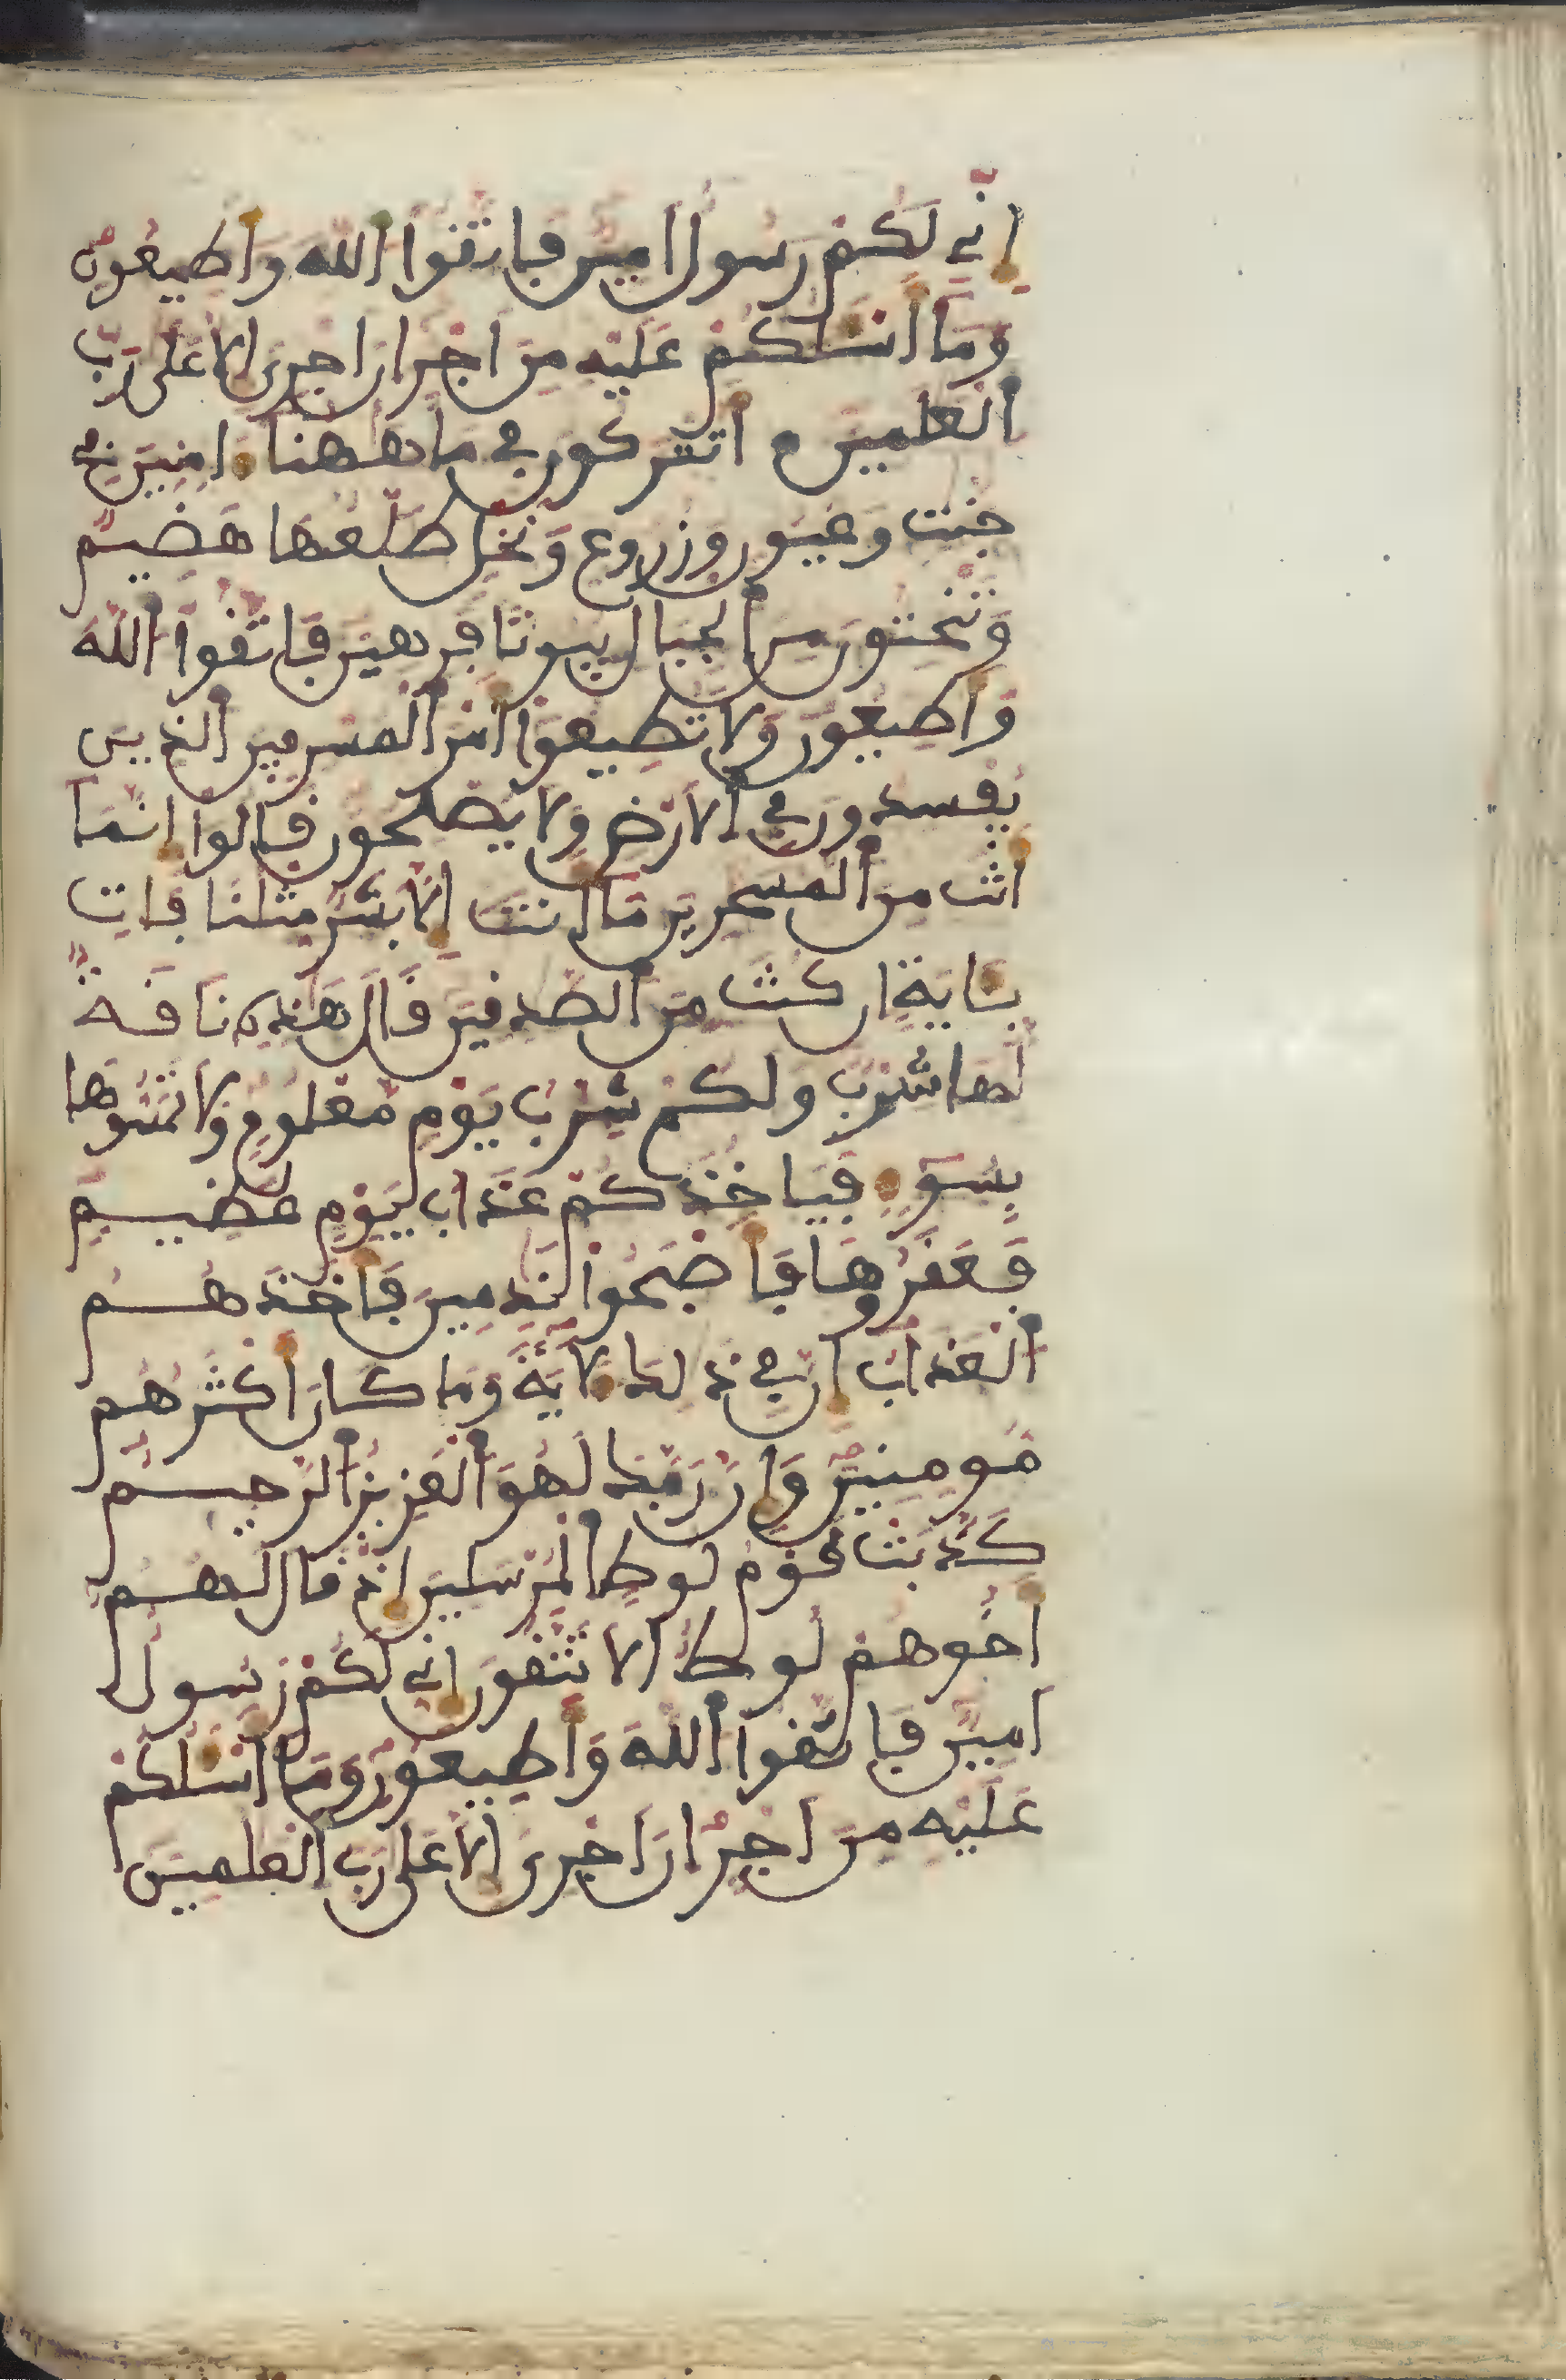 إِنِّي لَكُمْ رَسُولٌ أَمِينٌ فَاتَّقُوا اللَّهَ وَأَطِيعُونِ
وَمَا أَسْـَٔلُكُمْ عَلَيْهِ مِنَ اَجْرٍ إِنَ اَجْرِيَ إِلَّا عَلَى رَبِّ
الْعَٰلَمِينَ أَتُتْرَكُونَ فِي مَا هَٰهُنَا ءَامِنِينَ فِي
جَنَّٰتٍ وَعُيُونٍ وَزُرُوعٍ وَنَخْلٍ طَلْعُهَا هَضِيمٌ
وَتَنْحِتُونَ مِنَ الْجِبَالِ بُيُوتًا فَرِهِينَ فَاتَّقُوا اللَّهَ
وَأَطِيعُونِ وَلَا تُطِيعُوا أَمْرَ الْمُسْرِفِينَ الَّذِينَ
يُفْسِدُونَ فِي الْأَرْضِ وَلَا يُصْلِحُونَ قَالُوا إِنَّمَا
أَنتَ مِنَ الْمُسَحَّرِينَ مَا أَنتَ إِلَّا بَشَرٌ مِّثْلُنَا فَاتِ
بِـَٔايَةٍ إِن كُنتَ مِنَ الصَّٰدِقِينَ قَالَ هَٰذِهِ نَاقَةٌ
لَّهَا شِرْبٌ وَلَكُمْ شِرْبُ يَوْمٍ مَّعْلُومٍ وَلَا تَمَسُّوهَا
بِسُوءٍ فَيَاخُذَكُمْ عَذَابُ يَوْمٍ عَظِيمٍ
فَعَقَرُوهَا فَأَصْبَحُوا نَٰدِمِينَ فَأَخَذَهُمُ
الْعَذَابُ إِنَّ فِي ذَٰلِكَ لَأٓيَةً وَمَا كَانَ أَكْثَرُهُم
مُّومِنِينَ وَإِنَّ رَبَّكَ لَهُوَ الْعَزِيزُ الرَّحِيمُ
كَذَّبَتْ قَوْمُ لُوطٍ الْمُرْسَلِينَ إِذْ قَالَ لَهُمُ
أَخُوهُمْ لُوطٌ أَلَا تَتَّقُونَ إِنِّي لَكُمْ رَسُولٌ
أَمِينٌ فَاتَّقُوا اللَّهَ وَأَطِيعُونِ وَمَا أَسْـَٔلُكُمْ
عَلَيْهِ مِنَ اَجْرٍ إِنَ اَجْرِيَ إِلَّا عَلَى رَبِّ الْعَٰلَمِينَ